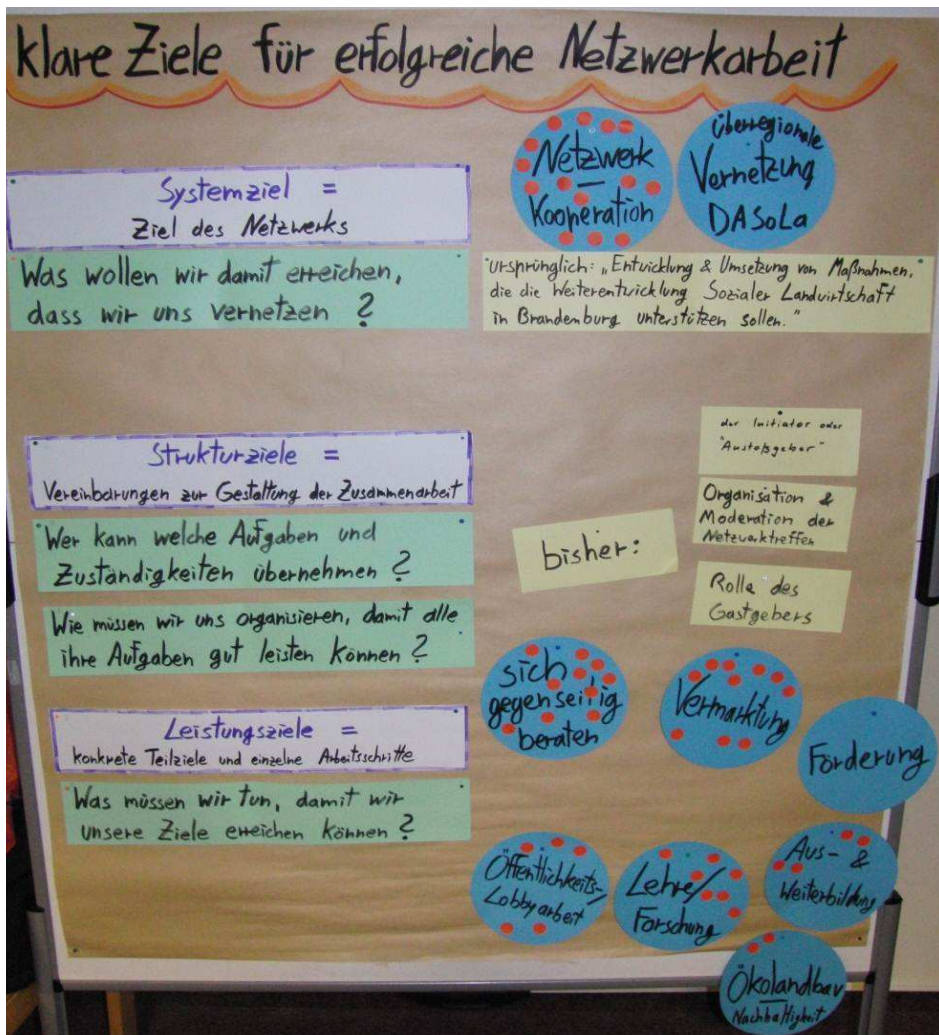 klare Ziele für erfolgreiche Netzwerkarbeit
Systemziel =
Ziel des Netzwerks
Was wollen wir damit erreichen,
dass wir uns vernetzen ?
Netzwerk
Kooperation
überregionale
Vernetzung
DASoLa
ursprünglich: „Entwicklung & Umsetzung von Maßnahmen,
die die Weiterentwicklung Sozialer Landwirtschaft
in Brandenburg unterstützen sollen."
Strukturziele =
Vereinbarungen zur Gestaltung der Zusammenarbeit
Wer kann welche Aufgaben und
Zuständigkeiten übernehmen ?
Wie müssen wir uns organisieren, damit alle
ihre Aufgaben gut leisten können ?
bisher:
der Initiator oder
"Anstoßgeber"
Organisation &
Moderation der
Netzwerktreffen
Rolle des
Gastgebers
Leistungsziele =
konkrete Teilziele und einzelne Arbeitsschritte
Was müssen wir tun, damit wir
unsere Ziele erreichen können ?
sich
gegenseitig
beraten
Vermarktung
Förderung
Öffentlichkeits-/
Lobbyarbeit
Lehre/
Forschung
Aus- &
Weiterbildung
Ökolandbau
Nachhaltigkeit